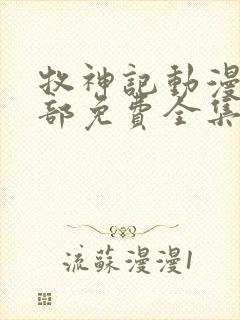 牧神記動漫
部免費全集
流蘇漫漫1